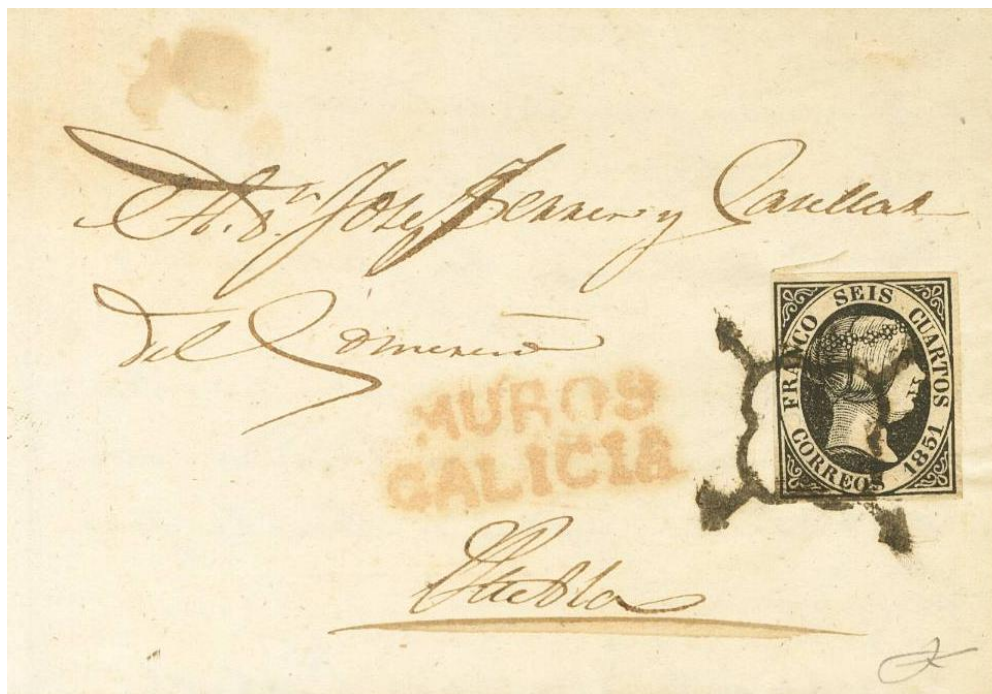 A D.ⁿ José Ferrer y Casellas
del Comercio
MUROS
GALICIA
FRANCO SEIS CUARTOS
CORREOS 1851
Puebla